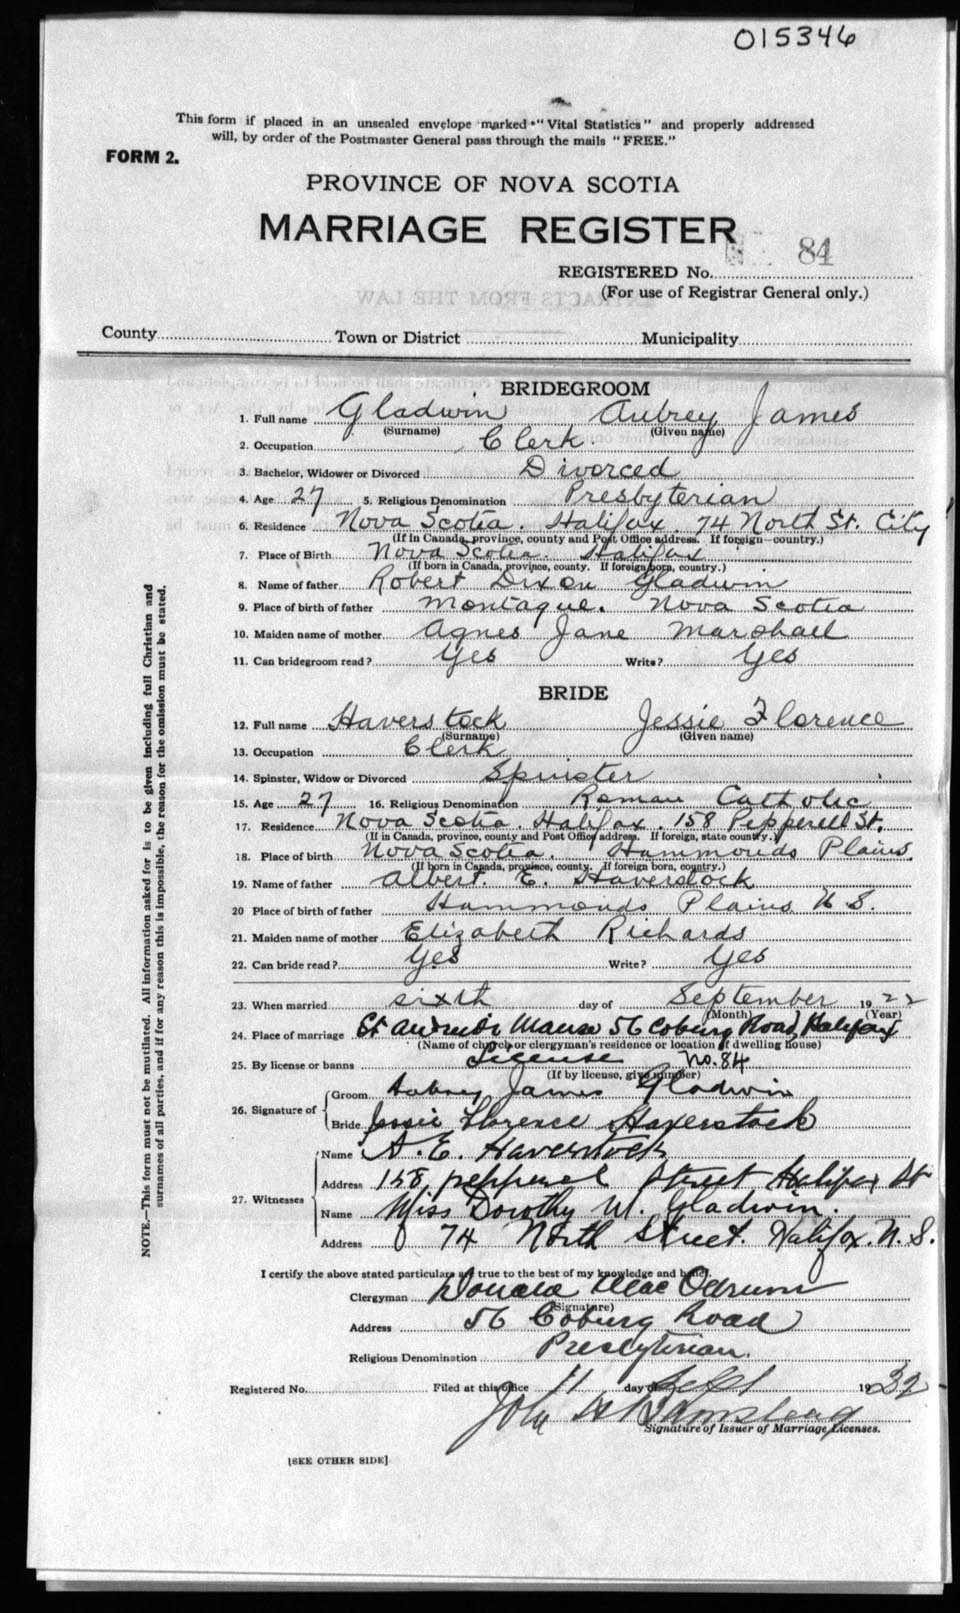 015346
This form if placed in an unsealed envelope marked "Vital Statistics" and properly addressed
will, by order of the Postmaster General pass through the mails "FREE."
FORM 2.
PROVINCE OF NOVA SCOTIA
MARRIAGE REGISTER
84
REGISTERED No.
(For use of Registrar General only.)
EXTRACTS FROM THE LAW
County Town or District Municipality
BRIDEGROOM
1. Full name Gladwin Aubrey James
(Surname) (Given name)
2. Occupation Clerk.
3. Bachelor, Widower or Divorced Divorced
4. Age 27 5. Religious Denomination Presbyterian
6. Residence Nova Scotia. Halifax. 74 North St. City
(If in Canada, province, county and Post Office address. If foreign—country.)
7. Place of Birth Nova Scotia. Halifax
(If born in Canada, province, county. If foreign born, country.)
8. Name of father Robert Dixon Gladwin
9. Place of birth of father Montague. Nova Scotia
10. Maiden name of mother Agnes Jane Marshall
11. Can bridegroom read? Yes Write? Yes
BRIDE
12. Full name Haverstock Jessie Florence
(Surname) (Given name)
13. Occupation Clerk
14. Spinster, Widow or Divorced Spinster
15. Age 27 16. Religious Denomination Roman Catholic
17. Residence Nova Scotia. Halifax. 158 Pepperell St.
(If in Canada, province, county and Post Office address. If foreign, state country.)
18. Place of birth Nova Scotia. Hammonds Plains.
(If born in Canada, province, county. If foreign born, country.)
19. Name of father Albert. E. Haverstock
20 Place of birth of father Hammonds Plains N S.
21. Maiden name of mother Elizabeth Richards
22. Can bride read? Yes Write? Yes
23. When married sixth day of September 19 22
(Month) (Year)
24. Place of marriage St Andrew's Manse 56 Coburg Road, Halifax
(Name of church or clergyman's residence or location if dwelling house)
25. By license or banns License No. 84
(If by license, give number)
26. Signature of
Groom Aubrey James Gladwin
Bride Jessie Florence Haverstock
27. Witnesses
Name A. E. Haverstock
Address 158, pepperel Street Halifax St
Name Miss Dorothy M. Gladwin.
Address 74 North Street. Halifax. N. S.
I certify the above stated particulars are true to the best of my knowledge and belief.
Clergyman Donald MacOdrum
(Signature)
Address 56 Coburg Road
Religious Denomination Presbyterian.
Registered No. Filed at this office 11 day of Sept 1932
John
Signature of Issuer of Marriage Licenses.
[SEE OTHER SIDE]
NOTE.—This form must not be mutilated. All information asked for is to be given including full Christian and
surnames of all parties, and if for any reason this is impossible, the reason for the omission must be stated.